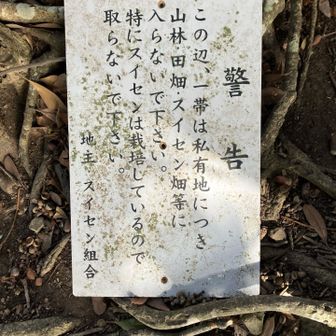 警告
この辺、一帯は私有地につき
山林田畑スイセン畑等に
入らないで下さい。
特にスイセンは栽培しているので
取らないで下さい。
地主 スイセン組合